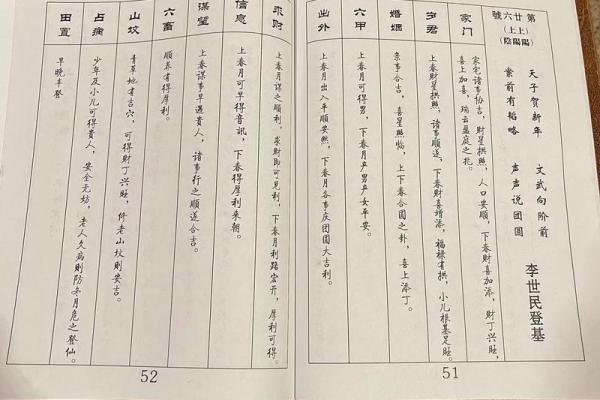 第廿六號
（上上）
（陰陽陽）
天子贺新年　文武向阶前
案前有韬略　声声说团圆
李世民登基
家门
家宅诸事协吉，财星拱照，人口安顺，下春财喜加添，财丁兴旺，
喜上加喜，瑞云盈庭之兆。
岁君
上春财星拱照，诸事顺遂，下春财喜增添，福禄有拱，小儿根基足旺。
婚姻
亲事合吉，喜星照临，上下春合圆之卦，喜上添丁。
六甲
上春月可得男，下春月产男产女平安。
出外
上春月出入平顺安然，下春月各事庆团圆大吉利。
求财
上春月谋之顺利，求财即可见利，下春月利路宏开，厚利可得。
信息
上春月可早得音讯，下春得厚利来朝。
谋望
上春谋事早遇贵人，诸事行之顺遂合吉。
六畜
顺养有得厚利。
山坟
青草地有吉穴，可得财丁兴旺，修老山坟则安吉。
占病
少年及小儿可得贵人，安全无妨，老人久病则防冬月危之登仙。
田置
早晚丰登
51
52